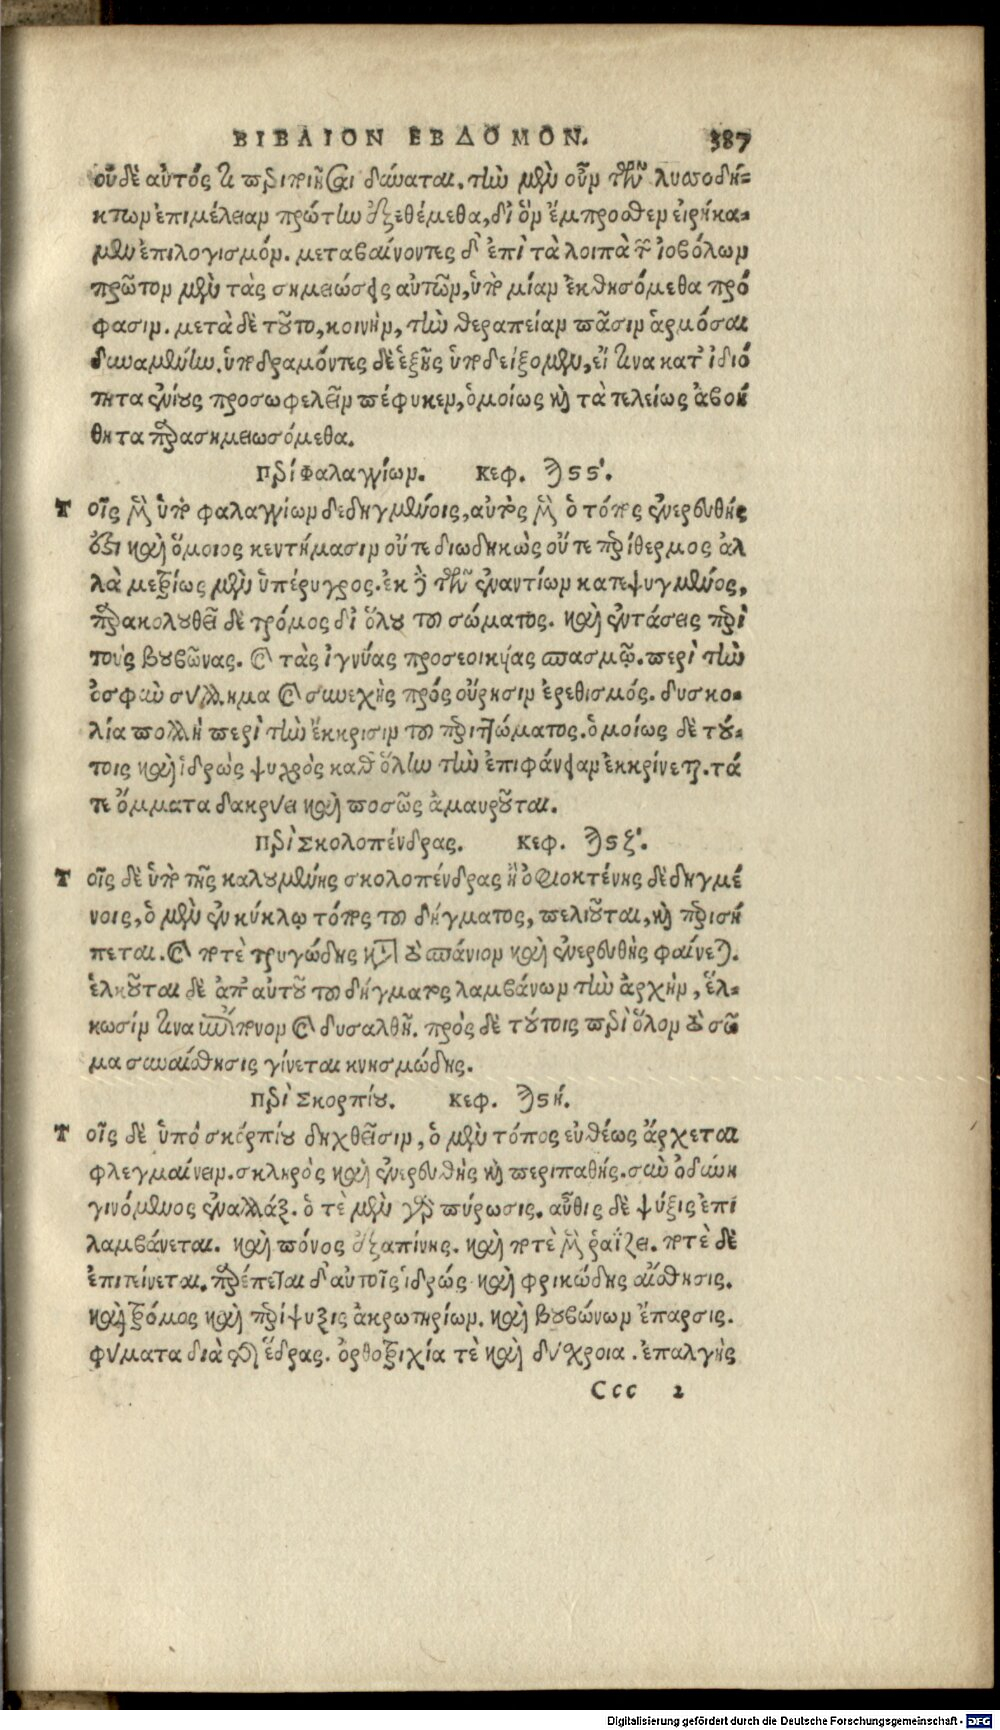 ΒΙΒΛΙΟΝ ΕΒΔΟΜΟΝ. 387
οὐδὲ αὐτός τι περιποιῆσαι δύναται. τὴν μὲν οὖν τῶν λυσσοδή-
κτων ἐπιμέλειαν πρώτην ἐξεθέμεθα, δι' ὃν ἔμπροσθεν εἰρήκα-
μεν ἐπιλογισμόν. μεταβαίνοντες δ' ἐπὶ τὰ λοιπὰ τῶν ἰοβόλων
πρῶτον μὲν τὰς σημειώσεις αὐτῶν, ὑπὸ μίαν ἐκθησόμεθα πρό
φασιν. μετὰ δὲ τοῦτο, κοινὴν, τὴν θεραπείαν πᾶσιν ἁρμόσαι
δυναμένην. ὑποδραμόντες δὲ ἑξῆς ὑποδείξομεν, εἴ τινα κατ' ἰδιό
τητα ἐνίους προσωφελεῖν πέφυκεν, ὁμοίως καὶ τὰ τελείως ἀβοή
θητα παρασημειωσόμεθα.
Περὶ Φαλαγγίων. Κεφ. ϡϛϛ'.
Τοῖς μὲν ὑπὸ φαλαγγίων δεδηγμένοις, αὐτὸς μὲν ὁ τόπος ἐνερευθής
ἐστι καὶ ὅμοιος κεντήμασιν οὔτε διωδηκὼς οὔτε περίθερμος ἀλ
λὰ μετρίως μὲν ὑπέρυγρος. ἐκ δὲ τῶν ἐναντίων κατεψυγμένος,
παρακολουθεῖ δὲ τρόμος δι' ὅλου τοῦ σώματος. καὶ ἐντάσεις περὶ
τοὺς βουβῶνας. καὶ τὰς ἰγνύας προσεοικυίας σπασμῷ. περὶ τὴν
ὀσφὺν σύλλημα καὶ συνεχὴς πρὸς οὔρησιν ἐρεθισμός. δυσκο-
λία πολλὴ περὶ τὴν ἔκκρισιν τοῦ περιττώματος. ὁμοίως δὲ τού-
τοις καὶ ἱδρὼς ψυχρὸς καθ' ὅλην τὴν ἐπιφάνειαν ἐκκρίνεται. τά
τε ὄμματα δακρύει καὶ ποσῶς ἀμαυροῦται.
Περὶ Σκολοπένδρας. Κεφ. ϡϛζ'.
Τοῖς δὲ ὑπὸ τῆς καλουμένης σκολοπένδρας ἢ ὀφιοκτένης δεδηγμέ
νοις, ὁ μὲν ἐν κύκλῳ τόπος τοῦ δήγματος, πελιοῦται, καὶ περισή
πεται. καὶ ποτὲ τρυγώδης κατὰ τὸ σπάνιον καὶ ἐνερευθὴς φαίνεται.
ἑλκοῦται δὲ ἀπ' αὐτοῦ τοῦ δήγματος λαμβάνων τὴν ἀρχὴν, ἕλ-
κωσίν τινα ἐπίπονον καὶ δυσαλθῆ. πρὸς δὲ τούτοις περὶ ὅλον τὸ σῶ
μα συναίσθησις γίνεται κνησμώδης.
Περὶ Σκορπίου. Κεφ. ϡϛή.
Τοῖς δὲ ὑπὸ σκορπίου δηχθεῖσιν, ὁ μὲν τόπος εὐθέως ἄρχεται
φλεγμαίνειν. σκληρὸς καὶ ἐνερευθὴς καὶ περιπαθής. σὺν ὀδύνῃ
γινόμενος ἐναλλάξ. ὁ τὲ μὲν γὰρ πύρωσις. αὖθις δὲ ψύξις ἐπι
λαμβάνεται. καὶ πόνος ἐξαπίνης. καὶ ποτὲ μὲν ῥαΐζει. ποτὲ δὲ
ἐπιτείνεται. παρέπεται δ' αὐτοῖς ἱδρώς καὶ φρικώδης αἴσθησις.
καὶ τρόμος καὶ περίψυξις ἀκρωτηρίων. καὶ βουβώνων ἔπαρσις.
φύματα διὰ τῆς ἕδρας. ὀρθοτριχία τὲ καὶ δύσχροια. ἐπαλγὴς
Ccc 2
Digitalisierung gefördert durch die Deutsche Forschungsgemeinschaft - DFG